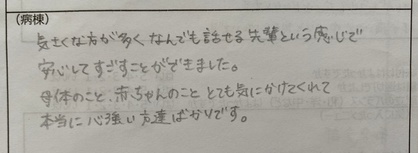 (病棟)
気さくな方が多く なんでも話せる先輩という感じで
安心してすごすことができました。
母体のこと、赤ちゃんのこと とても気にかけてくれて
本当に心強い方達ばかりです。